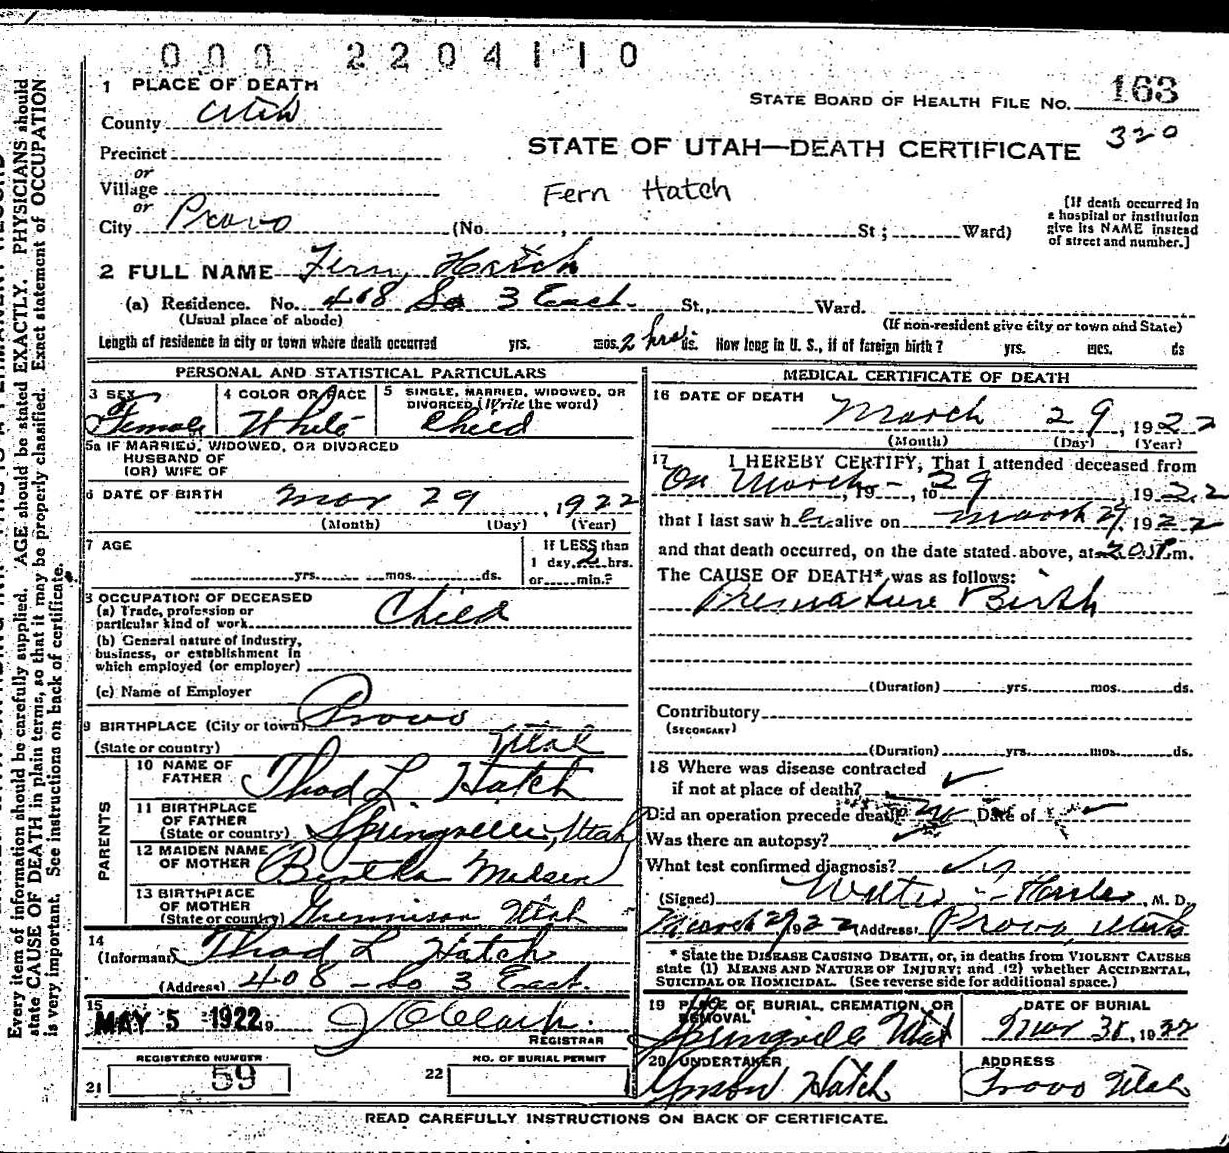 000 2204110
1 PLACE OF DEATH
STATE BOARD OF HEALTH FILE NO. 163
County Utah
320
STATE OF UTAH—DEATH CERTIFICATE
Precinct
or
Village
Fern Hatch
or
City Provo (No. , St ; Ward)
[If death occurred in
a hospital or institution
give its NAME instead
of street and number.]
2 FULL NAME Fern Hatch
(a) Residence. No. 408 So 3 East St., Ward.
(Usual place of abode) (If non-resident give city or town and State)
Length of residence in city or town where death occurred yrs. mos. 2 hrs. ds. How long in U. S., if of foreign birth? yrs. mos. ds
PERSONAL AND STATISTICAL PARTICULARS
3 SEX
Female
4 COLOR OR RACE
White
5 SINGLE, MARRIED, WIDOWED, OR
DIVORCED (Write the word)
Child
5a IF MARRIED, WIDOWED, OR DIVORCED
HUSBAND OF
(OR) WIFE OF
6 DATE OF BIRTH Mar 29, 1922
(Month) (Day) (Year)
7 AGE
yrs. mos. ds.
If LESS than
1 day, 2 hrs.
or min.?
8 OCCUPATION OF DECEASED
(a) Trade, profession or
particular kind of work Child
(b) General nature of industry,
business, or establishment in
which employed (or employer)
(c) Name of Employer
9 BIRTHPLACE (City or town) Provo
(State or country) Utah
PARENTS
10 NAME OF
FATHER Thad L Hatch
11 BIRTHPLACE
OF FATHER
(State or country) Springville, Utah
12 MAIDEN NAME
OF MOTHER Bertha Madsen
13 BIRTHPLACE
OF MOTHER
(State or country) Gunnison Utah
14
(Informant) Thad L Hatch
(Address) 408 - So 3 East
15
MAY 5 1922
J C Clark
REGISTRAR
REGISTERED NUMBER
21 59
NO. OF BURIAL PERMIT
22
MEDICAL CERTIFICATE OF DEATH
16 DATE OF DEATH
March 29, 1922
(Month) (Day) (Year)
17 I HEREBY CERTIFY, That I attended deceased from
On March, 19 -, to 29 1922
that I last saw her alive on March 29, 1922
and that death occurred, on the date stated above, at m.
The CAUSE OF DEATH* was as follows:
Premature Birth
(Duration) yrs. mos. ds.
Contributory
(SECONDARY)
(Duration) yrs. mos. ds.
18 Where was disease contracted
if not at place of death?
Did an operation precede death? no Date of
Was there an autopsy?
What test confirmed diagnosis?
(Signed) Walter Hasler, M. D.
March 29 1922 (Address) Provo, Utah
* State the DISEASE CAUSING DEATH, or, in deaths from VIOLENT CAUSES
state (1) MEANS AND NATURE OF INJURY; and (2) whether ACCIDENTAL,
SUICIDAL OR HOMICIDAL. (See reverse side for additional space.)
19 PLACE OF BURIAL, CREMATION, OR
REMOVAL
Springville Utah
DATE OF BURIAL
Mar 31, 1922
20 UNDERTAKER
Hatch
ADDRESS
Provo Utah
READ CAREFULLY INSTRUCTIONS ON BACK OF CERTIFICATE.
Every item of information should be carefully supplied. AGE should be stated EXACTLY. PHYSICIANS should
state CAUSE OF DEATH in plain terms, so that it may be properly classified. Exact statement of OCCUPATION
is very important. See instructions on back of certificate.